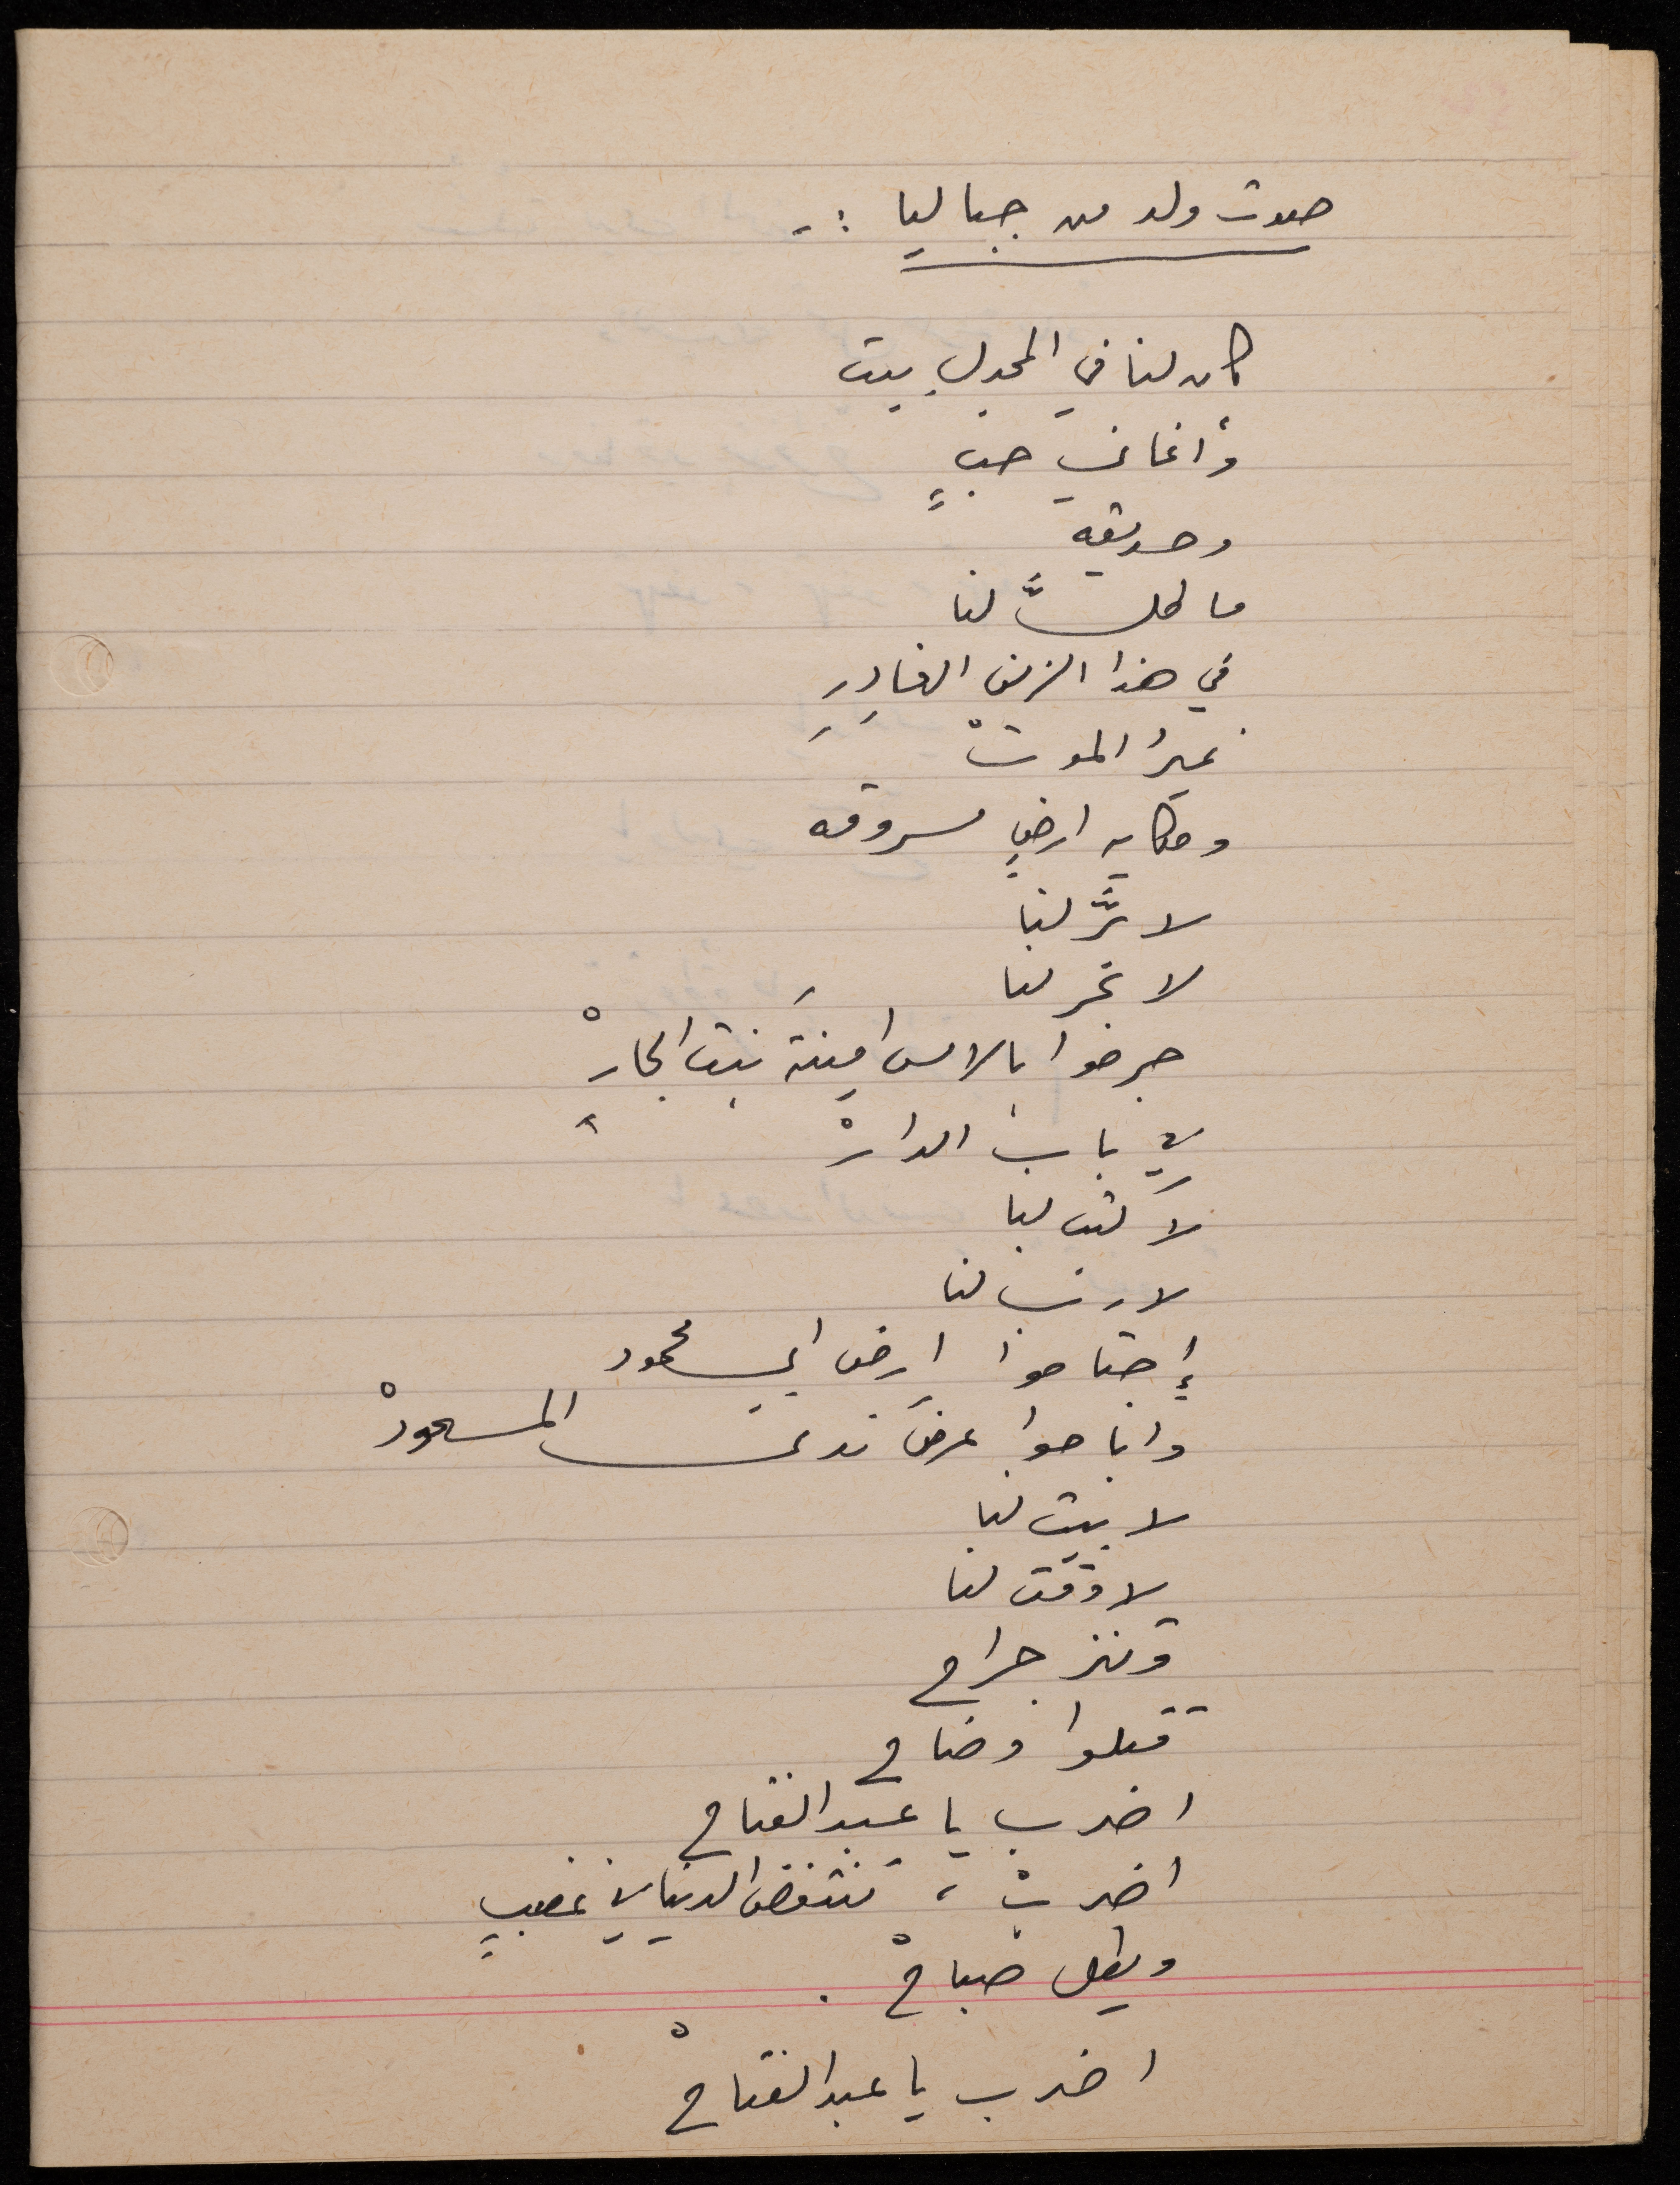 صوت ولد من جباليا :-
كان لنا في المجدلِ بيت
وأغاني حبٍ
وحديقه
ما ظلَّ لنا
في هذا الزمن الغادِرِ
غيرُ الموتْ
وحكايه ارضٍ مسروقه
لا برَّ لنا
لا بحر لنا
جرفوا بالامس امينةَ بنت الجارْ
لا بابَ الدارْ
لا كتب لنا
لا ربَ لنا
إجتاحوا ارض ابي محمود
واباحوا عرضَ ندى المسعودْ
لا بيت لنا
لا وقت لنا
وننز جراح
قتلوا وضاح
اضرب يا عبد الفتاح
اضربْ ، تنتفض الدنيا في غضبٍ
ويطل صباحْ .
اضرب يا عبد الفتاحْ